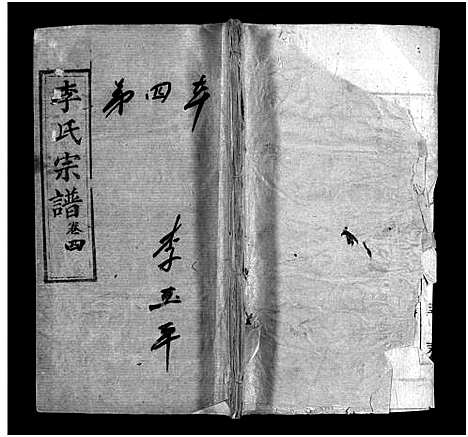 李氏宗譜 卷四
第四本
李玉平